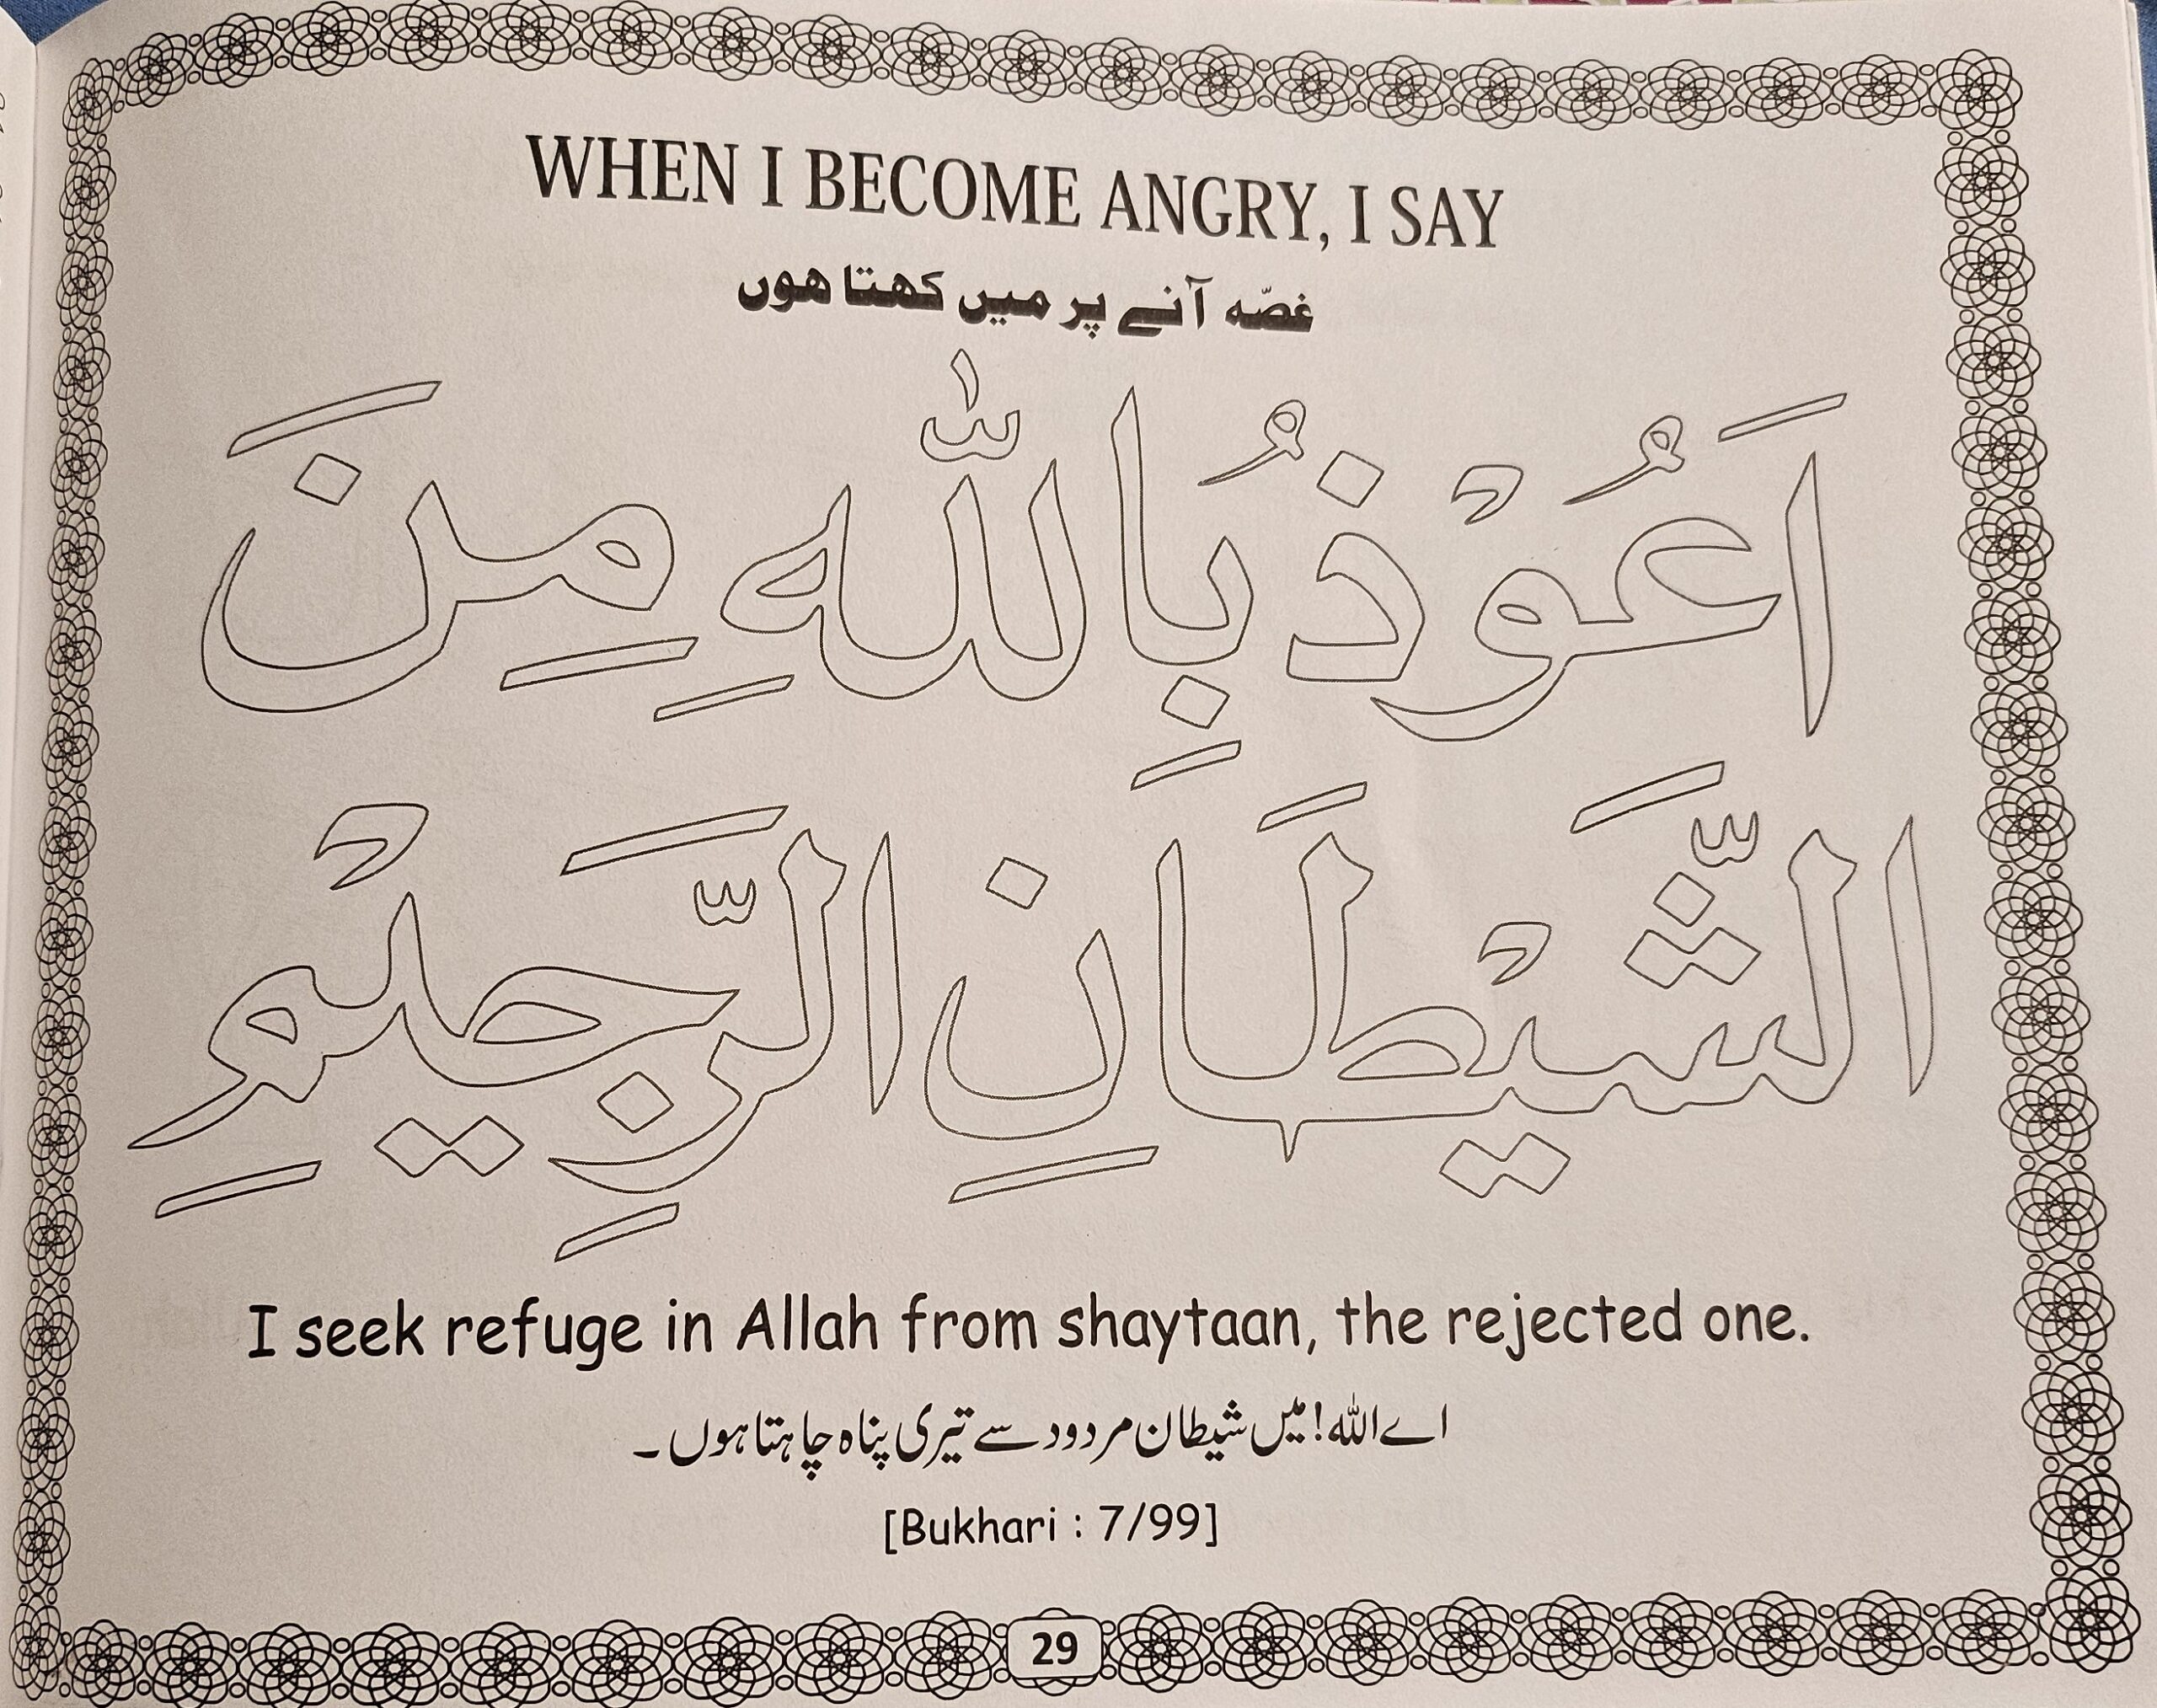 WHEN I BECOME ANGRY, I SAY
غصّہ آنے پر میں کھتا ھوں
اَعُوْذُ بِاللّٰهِ مِنَ
الشَّيْطَانِ الرَّجِيْمِ
I seek refuge in Allah from shaytaan, the rejected one.
اے اللہ! میں شیطان مردود سے تیری پناہ چاہتا ہوں۔
[Bukhari : 7/99]
29